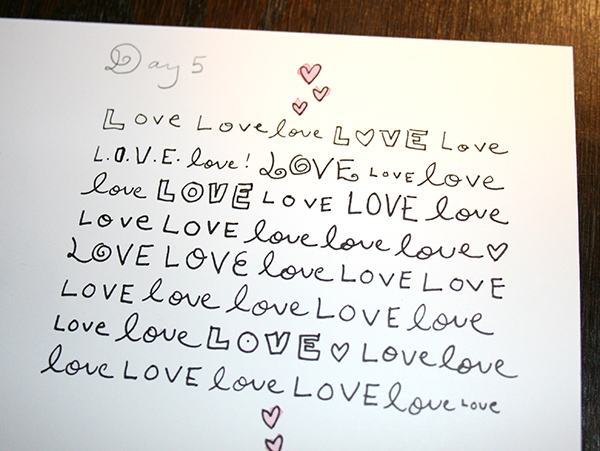 Day 5
Love Love love L♡VE Love
L.O.V.E. love! LOVE LOVE love
love LOVE LOVE LOVE love
LOVE LOVE love love love ♡
LOVE LOVE love LOVE LOVE
LOVE love love LOVE love
LOVE love LOVE ♡ LOVE love
love LOVE love LOVE love LOVE